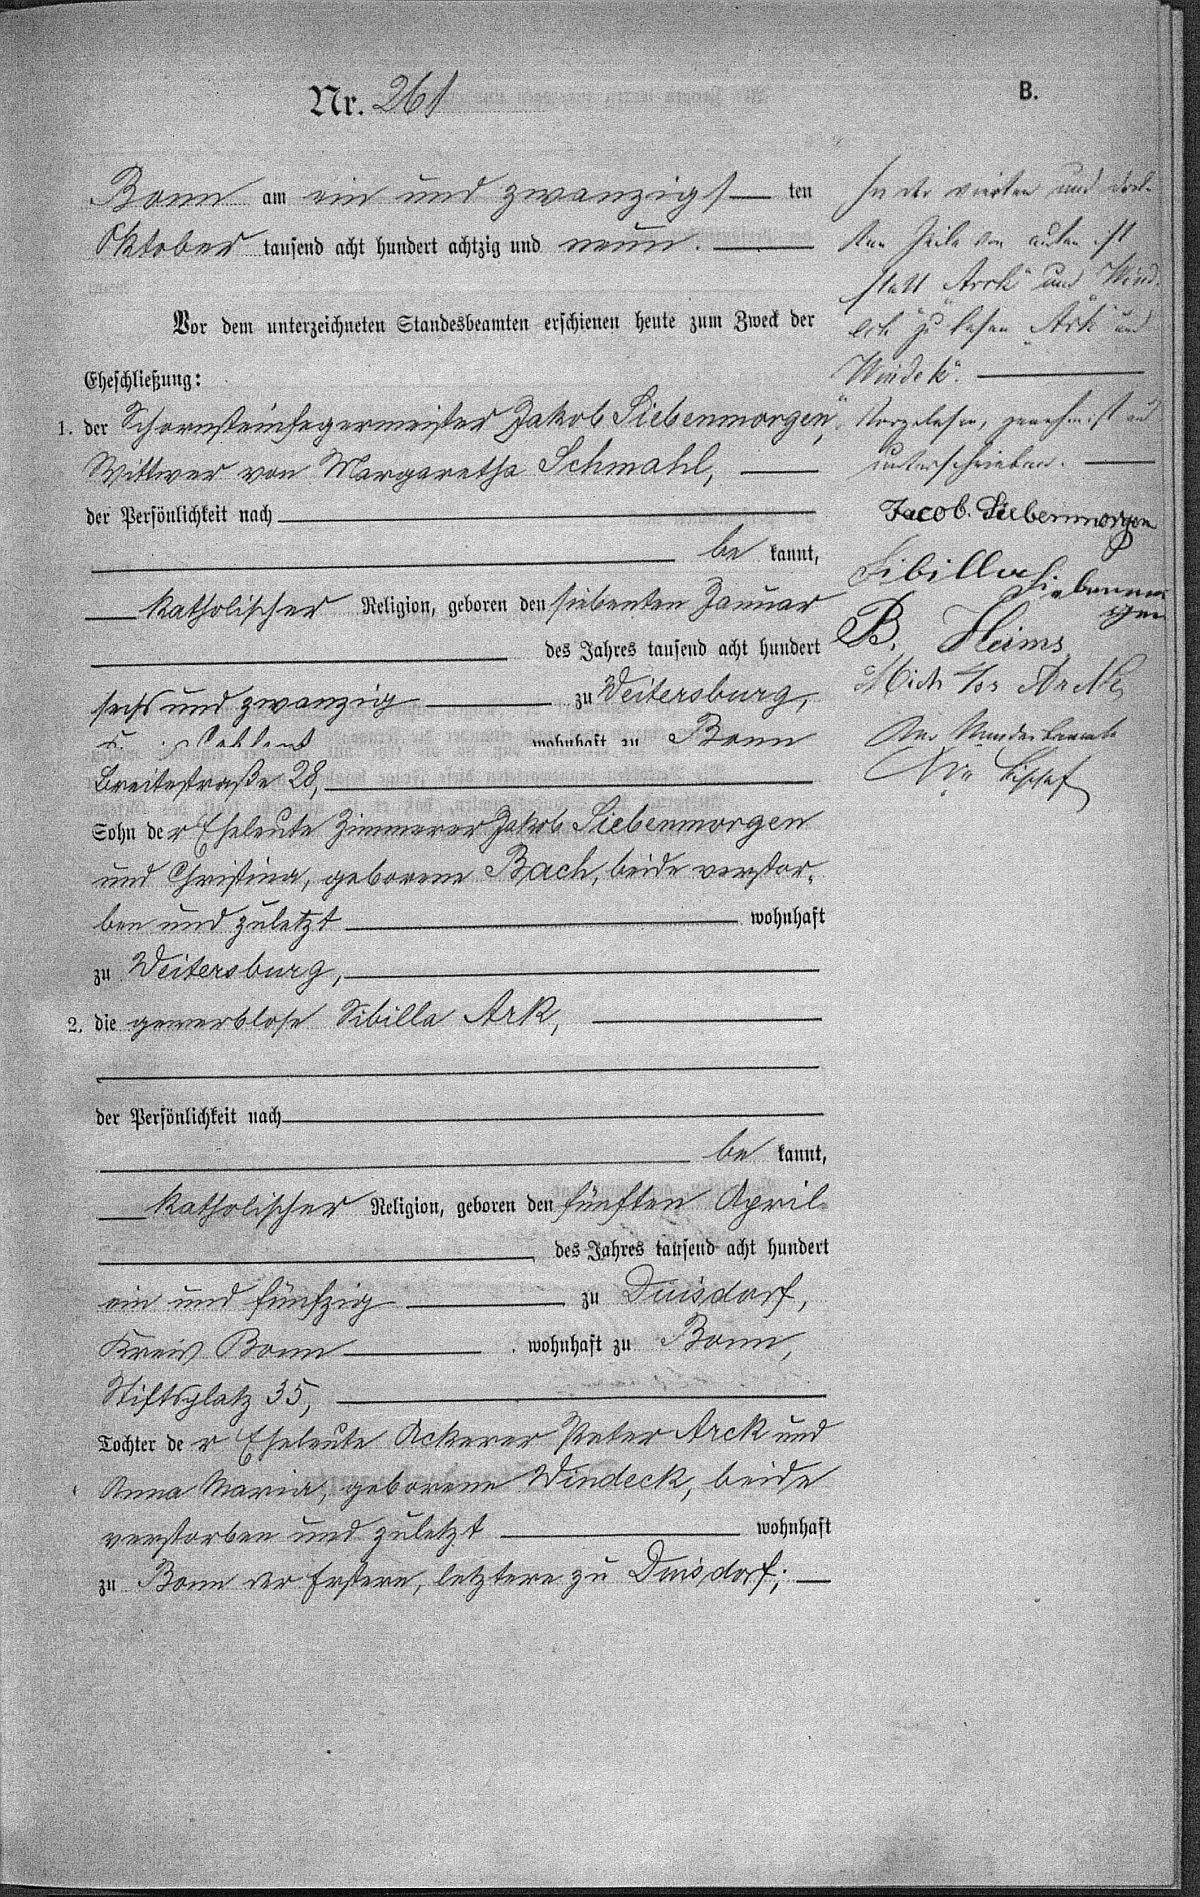 Nr. 261
B.
Bonn am ein und zwanzigs ten
Oktober tausend acht hundert achtzig und neun.
Vor dem unterzeichneten Standesbeamten erschienen heute zum Zweck der
Eheschließung:
1. der Schornsteinfegermeister Jakob Siebenmorgen,
Wittwer von Margaretha Schmahl,
der Persönlichkeit nach
be kannt,
katholischer Religion, geboren den siebenten Januar
des Jahres tausend acht hundert
sechs und zwanzig zu Weitersburg,
wohnhaft zu Bonn
Breitestraße 28,
Sohn der Eheleute Zimmerer Jakob Siebenmorgen
und Christina, geborene Bach, beide verstor-
ben und zuletzt wohnhaft
zu Weitersburg,
2. die gewerblose Sibilla Ark,
der Persönlichkeit nach
be kannt,
katholischer Religion, geboren den fünften April
des Jahres tausend acht hundert
ein und fünfzig zu Duisdorf,
Kreis Bonn wohnhaft zu Bonn,
Stiftsplatz 35,
Tochter der Eheleute Ackerer Peter Arck und
Anna Maria, geborene Windeck, beide
verstorben und zuletzt wohnhaft
zu Bonn der Erstere, letztere zu Duisdorf;
In der vierten und drit-
ten Zeile von unten ist
statt "Arck" und "Wind-
eck" zu lesen "Ark" und
"Windek".
Vorgelesen, genehmigt und
unterschrieben.
Jacob. Siebenmorgen
Sibilla Siebenmor
gen
B. Heims
Der Standesbeamte